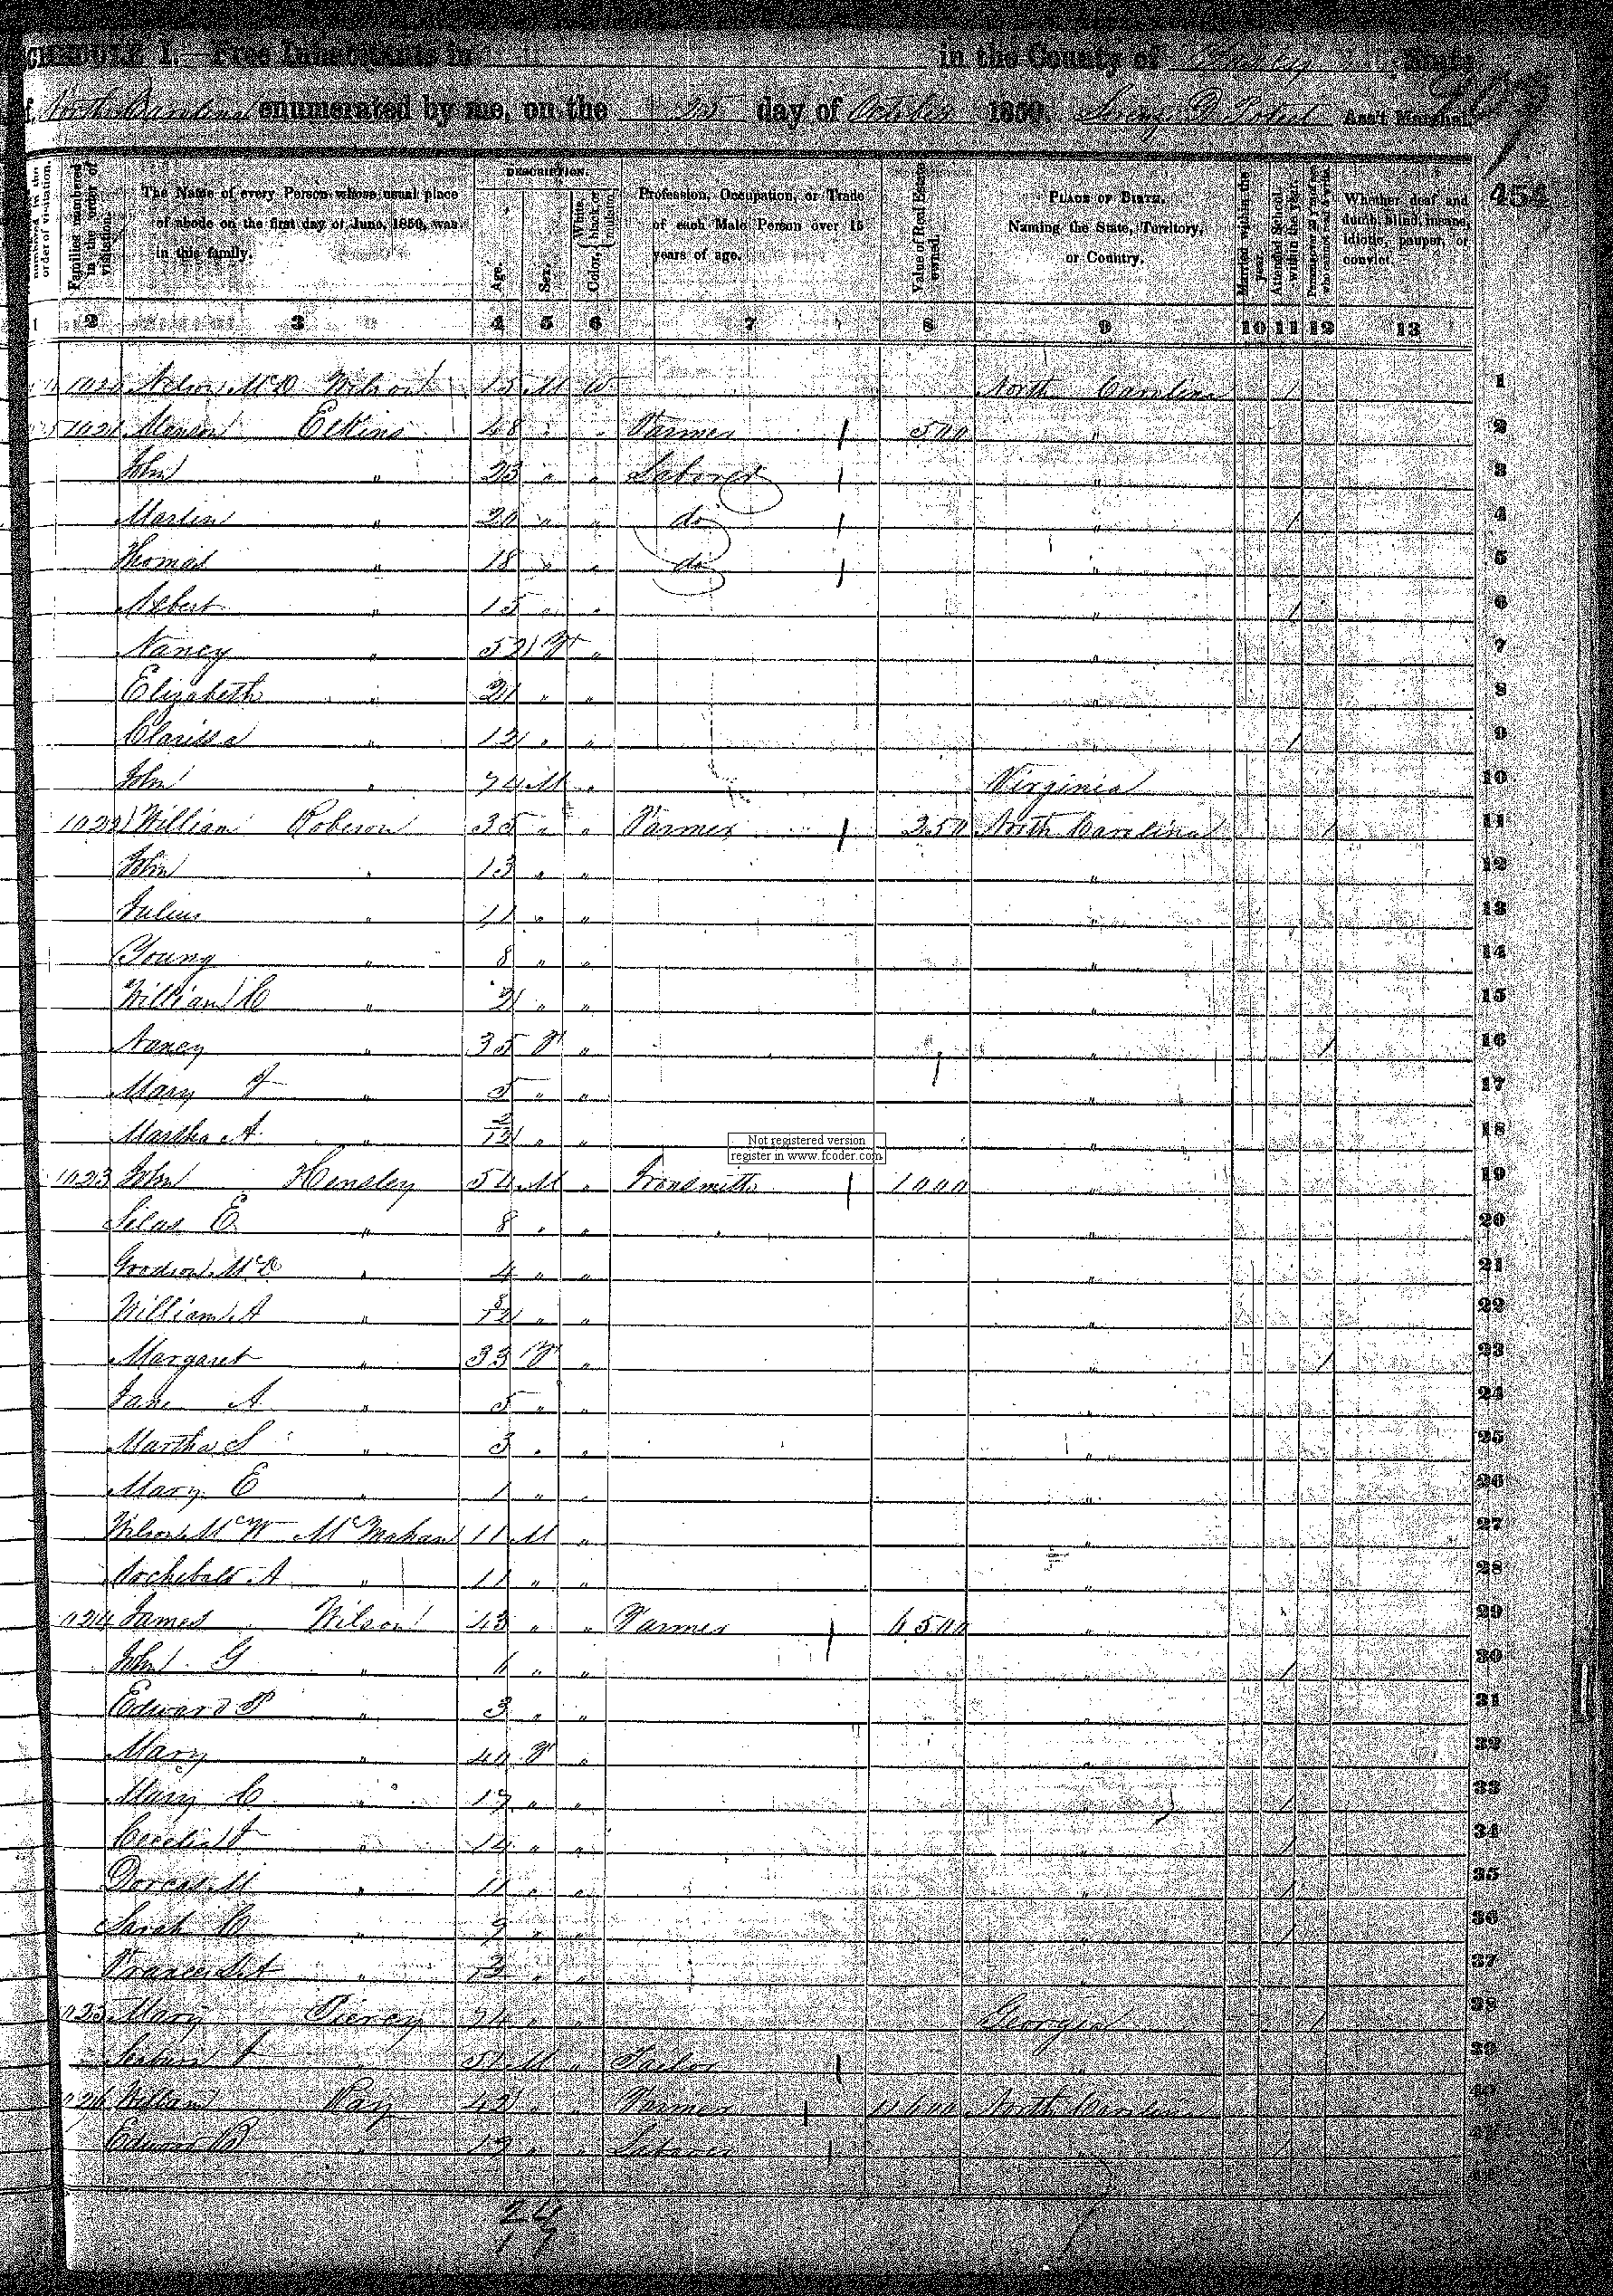 SCHEDULE I.—Free Inhabitants in in the County of Yancey State
of North Carolina enumerated by me, on the 25 day of October 1850. Ass't Marshal.
454
DESCRIPTION.
Families numbered in the order of visitation.
The Name of every Person whose usual place of abode on the first day of June, 1850, was in this family.
Age.
Sex.
Color, { White, black, or mulatto.
Profession, Occupation, or Trade of each Male Person over 15 years of age.
Value of Real Estate owned.
PLACE OF BIRTH. Naming the State, Territory, or Country.
Married within the year.
Attended School within the year.
Persons over 20 y'rs of age who cannot read & write.
Whether deaf and dumb, blind, insane, idiotic, pauper, or convict.
1 2 3 4 5 6 7 8 9 10 11 12 13
1020 Nelson McD Wilson 15 M W North Carolina / 1
1021 Elkins 48 " " Farmer / 500 " 2
John " 23 " " Laborer / " 3
Martin " 20 " " do / " / 4
Thomas " 18 " " do / " 5
Albert " 15 " " " / 6
Nancy " 52 F " " 7
Elizabeth " 21 " " " 8
Clarissa " 12 " " " / 9
John " 74 M " Virginia 10
1022 William Roberson 35 " " Farmer / 250 North Carolina / 11
John " 13 " " " 12
Julius " 11 " " " 13
Young " 8 " " " 14
William C " 2 " " " 15
Nancy " 35 F " " / 16
Mary F " 5 " " " 17
Martha A " 2/12 " " " 18
Not registered version
register in www.fcoder.com
1023 John Hensley 54 M " Ironsmith / 1000 " 19
Silas E " 8 " " " 20
McD " 4 " " " 21
William A " 8/12 " " " 22
Margaret " 33 F " " / 23
Jane A " 5 " " " 24
Martha S " 3 " " " 25
Mary E " 1 " " " 26
Wilson McW McMahan 11 M " " 27
Archibald A " 11 " " " 28
1024 James Wilson 43 " " Farmer / 6500 " 29
John G " 6 " " " / 30
Edward P " 3 " " " 31
Mary " 40 F " " 32
Mary C " 17 " " " / 33
Cecelia F " 14 " " " / 34
Dorcas M " 11 " " " / 35
Sarah C " 9 " " " / 36
Frances " " " " 37
1025 Mary Piercy 74 " " Georgia / 38
" 51 M " Tailor / " 39
1026 William Ray 42 " " Farmer / North Carolina 40
Edward B " 19 " " Laborer / " / 41
42